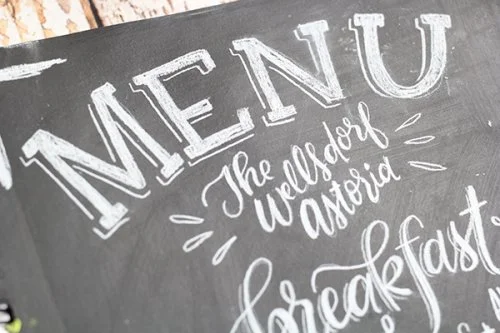 MENU
The
Wellsdorf
astoria
breakfast